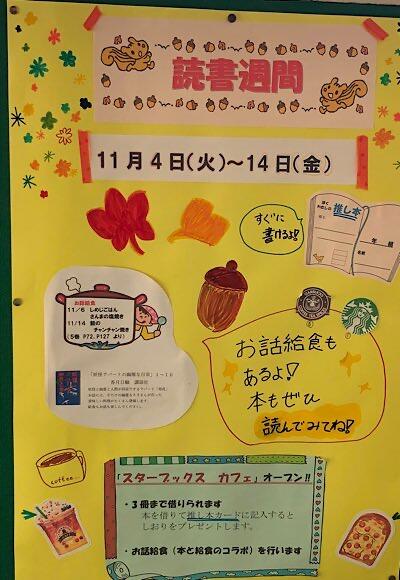 読書週間
11月4日(火)～14日(金)
すぐに
書けるよ!
推し本
年 組
名前
お話給食
11/6 しめじごはん
さんまの塩焼き
11/14 鮭の
チャンチャン焼き
(5巻 P72、P127 より)
『妖怪アパートの幽雅な日常』1～10
香月日輪 講談社
お話給食も
あるよ!
本もぜひ
読んでみてね!!
coffee
「スターブックス カフェ」オープン!!
・3冊まで借りられます
本を借りて推し本カードに記入すると
しおりをプレゼントします。
・お話給食(本と給食のコラボ)を行います